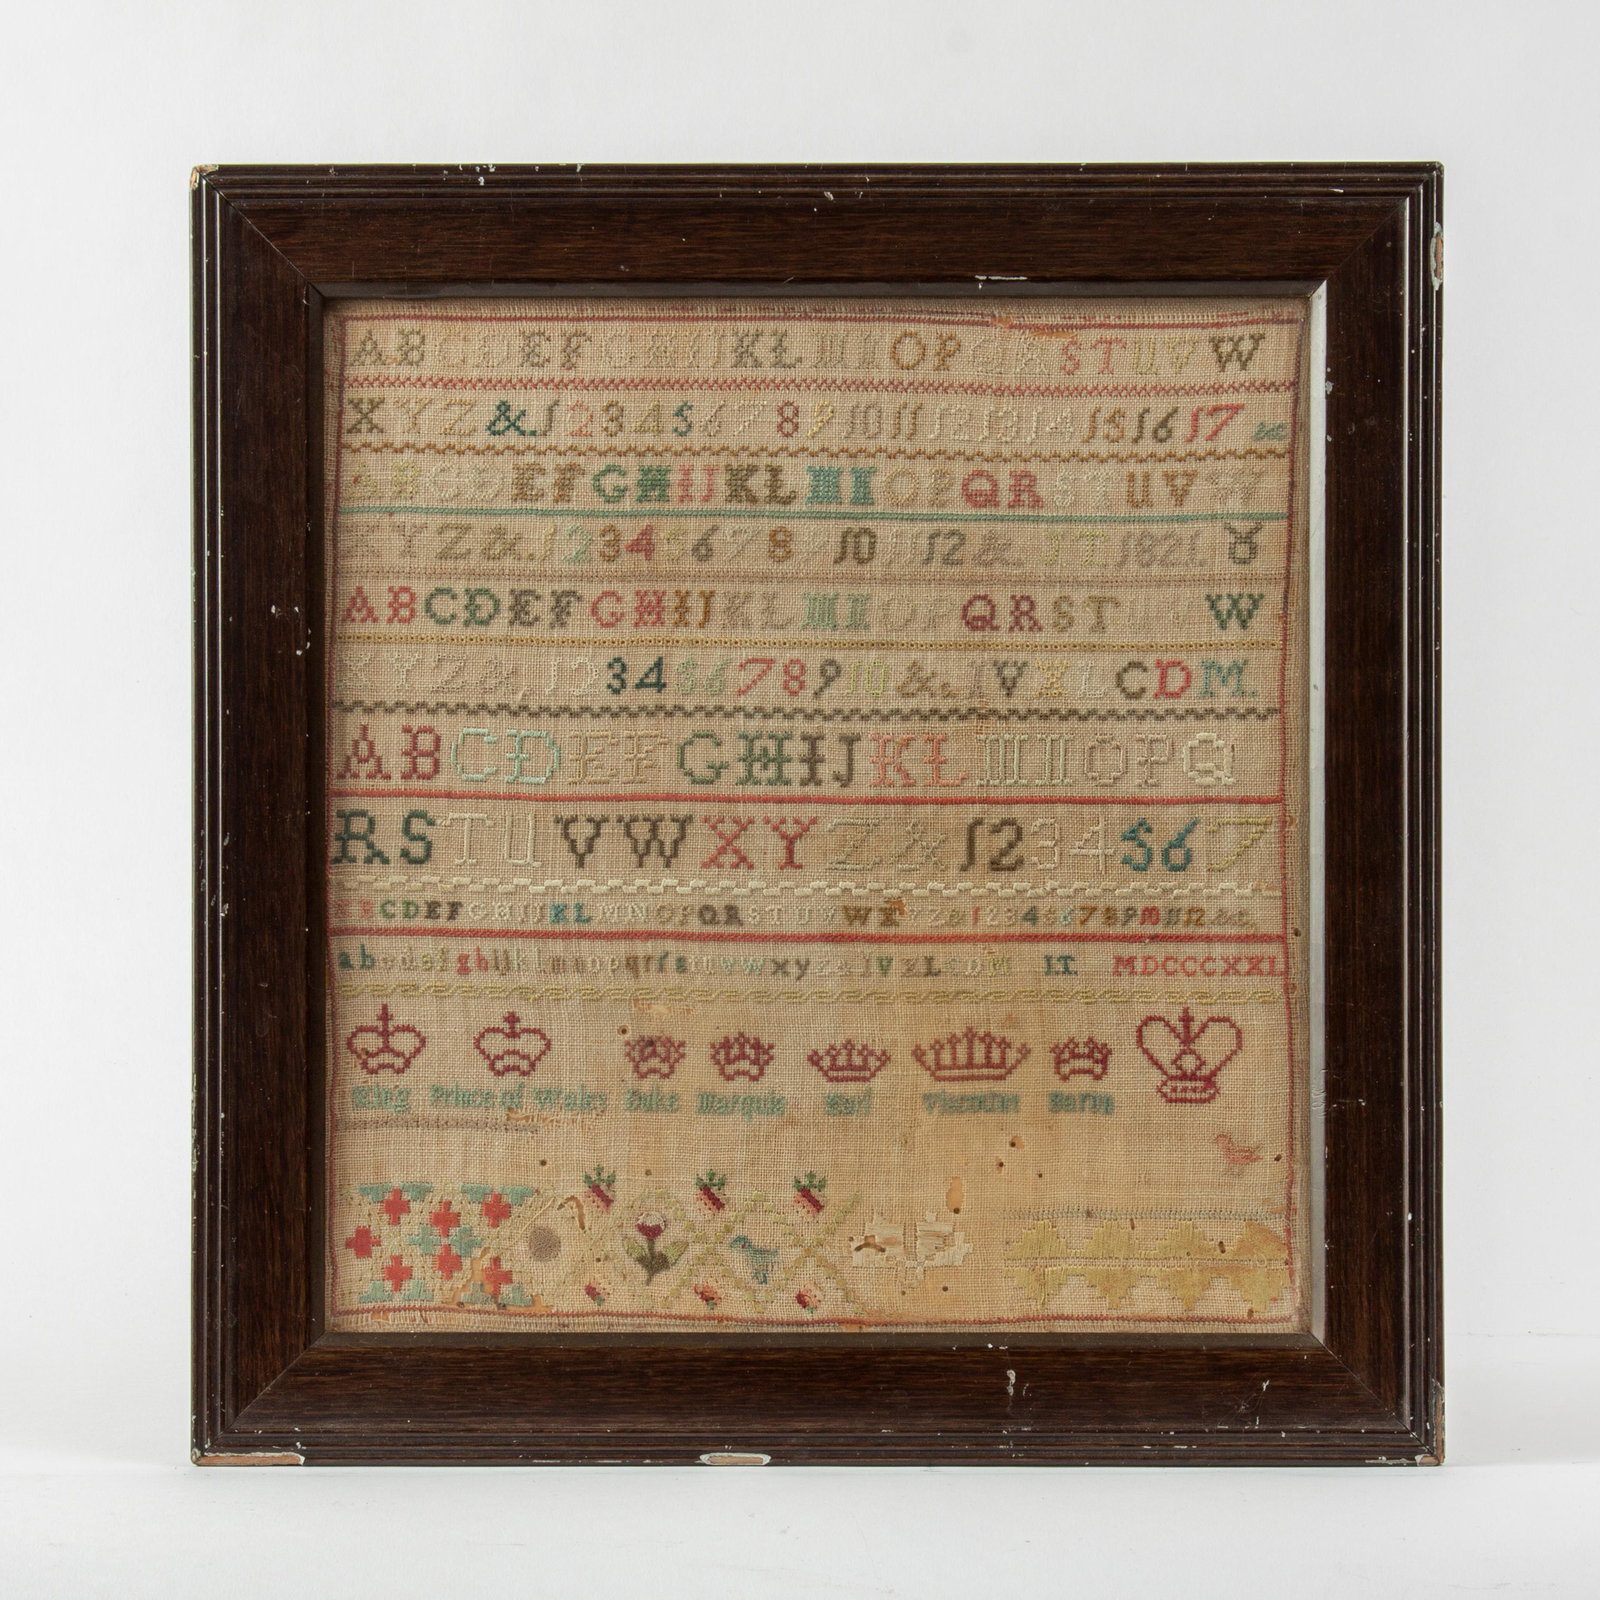 ABCDEFGHIJKLMNOPQRSTUVW
XYZ&.1234567891011121314151617 &c
ABCDEFGHIJKLMNOPQRSTUVW
XYZ&.123456789101112& IT 1821.
ABCDEFGHIJKLMNOPQRSTUVW
XYZ&.12345678910&.IVXLCDM.
ABCDEFGHIJKLMNOPQ
RSTUVWXYZ&1234567
ABCDEFGHIJKLMNOPQRSTUVWXYZ&123456789101112&c.
abcdefghijklmnopqrſstuvwxyz&IVXLCDM I.T. MDCCCXXI
King Prince of Wales Duke Marquis Earl Viscount Baron